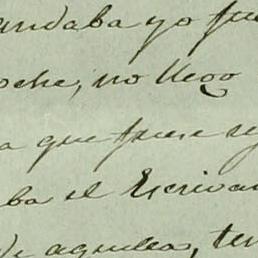 andaba yo fue
oche, no llego
a que fuese se
ba el Escriva
de aquellas, ten